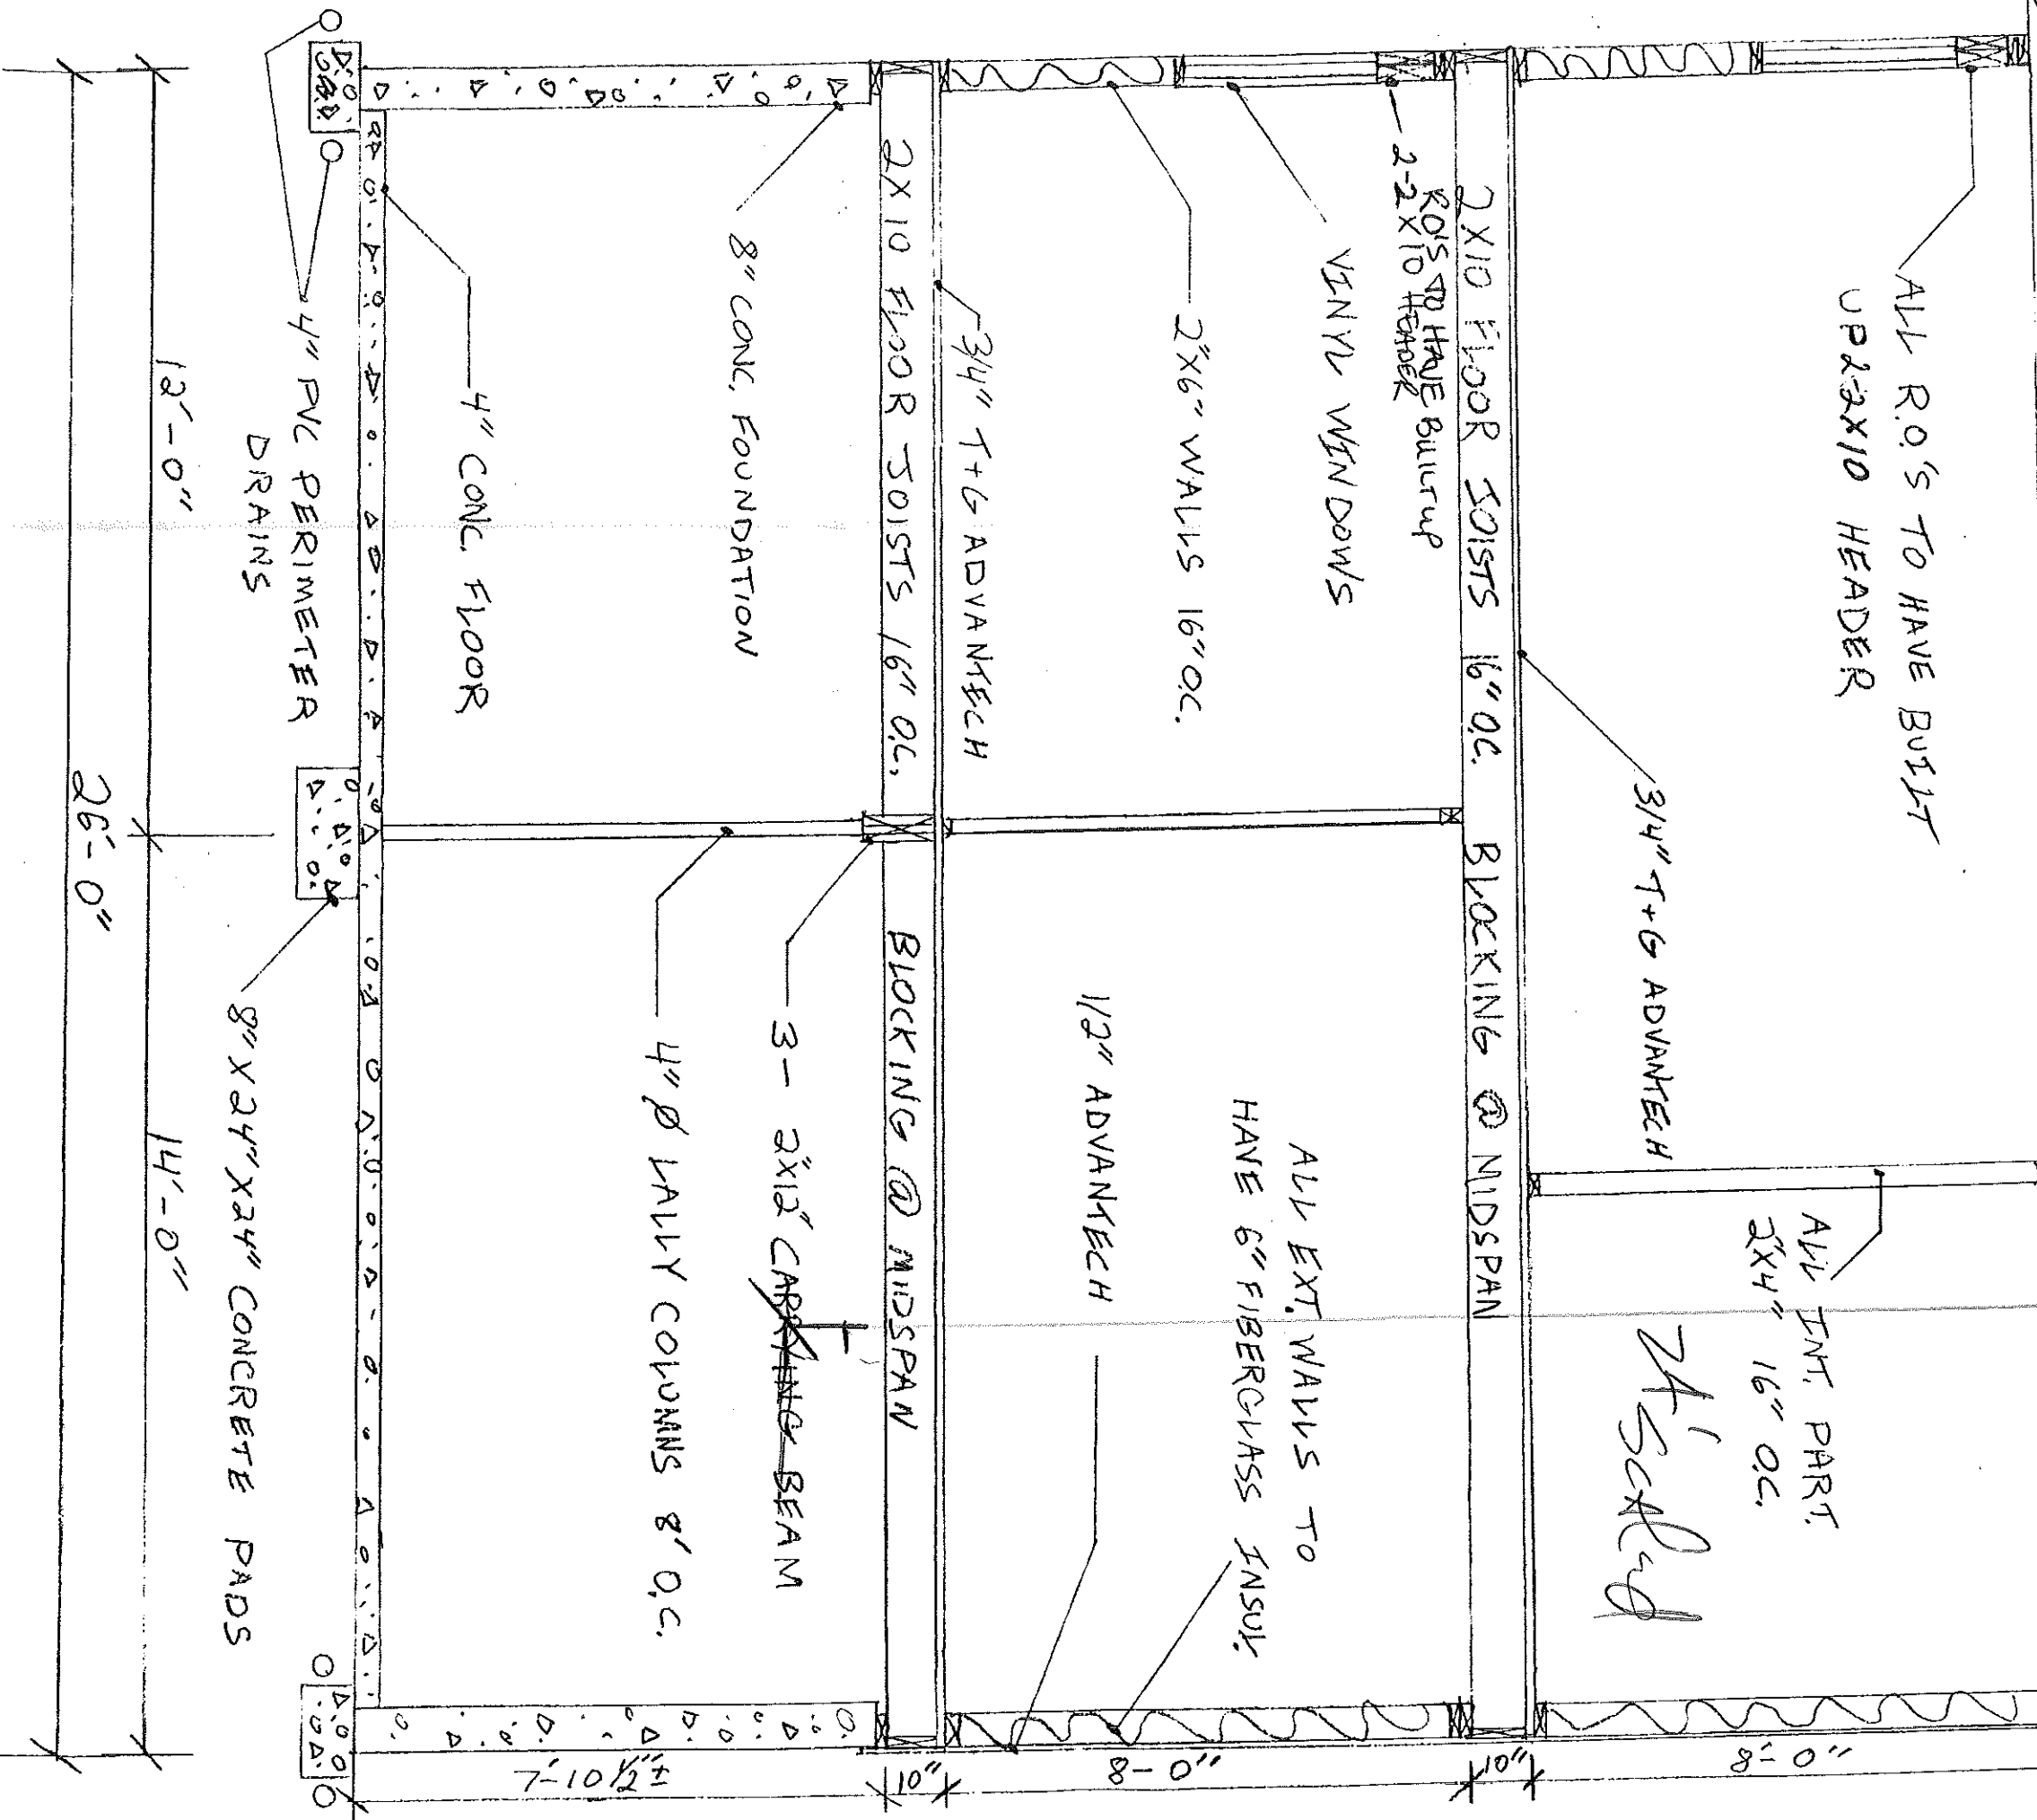 ALL R.O.'S TO HAVE BUILT
UP 2-2X10 HEADER
3/4" T+G ADVANTECH
ALL INT. PART.
2"X4" 16" O.C.
8'-0"
2X10 FLOOR JOISTS 16" O.C. BLOCKING @ MIDSPAN
10"
RO'S TO HAVE BUILT UP
2-2X10 HEADER
VINYL WINDOWS
2"X6" WALLS 16" O.C.
ALL EXT. WALLS TO
HAVE 6" FIBERGLASS INSUL.
1/2" ADVANTECH
8'-0"
3/4" T+G ADVANTECH
2X10 FLOOR JOISTS 16" O.C. BLOCKING @ MIDSPAN
10"
8" CONC. FOUNDATION
3- 2"X12" CARRYING BEAM
4" Ø LALLY COLUMNS 8' O.C.
4" CONC. FLOOR
7'-10 1/2" ±
4" PVC PERIMETER
DRAINS
8" X 24" X 24" CONCRETE PADS
12'-0"
14'-0"
26'-0"